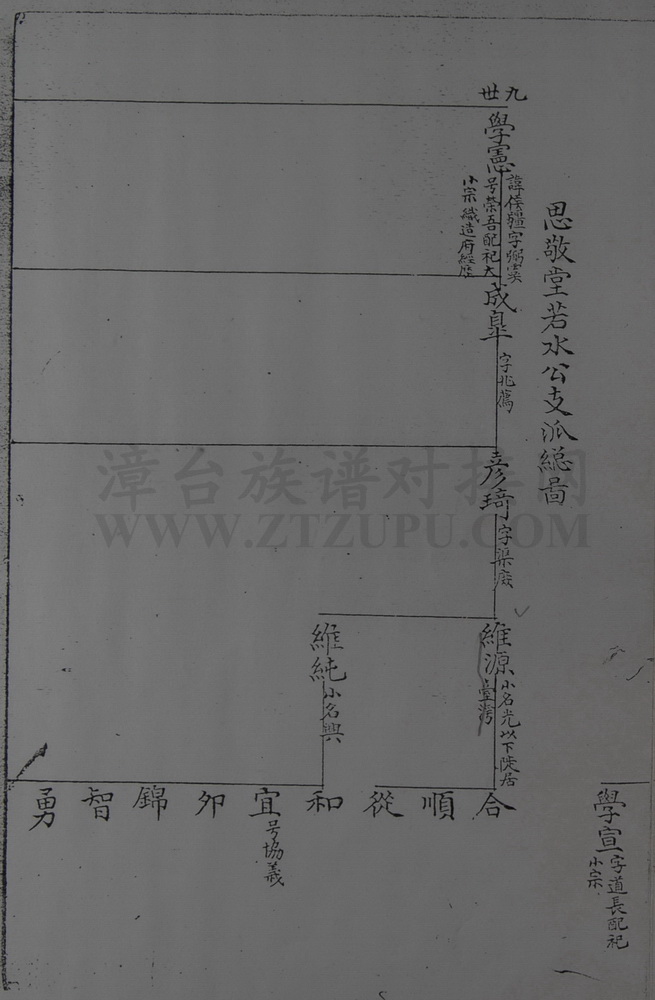 思敬堂若水公支派總啚
九世
學憲
諱倭疆字弼寰
号榮吾配祀大
小宗織造府經歷
成臯
字兆薦
彥琦
字渠疾
維源
小名光以下陡居
臺灣
維純
小名興
合
順
從
和
宜
号協義
夘
錦
智
勇
學宣
字道長配祀
小宗
漳台族谱对接网
WWW.ZTZUPU.COM